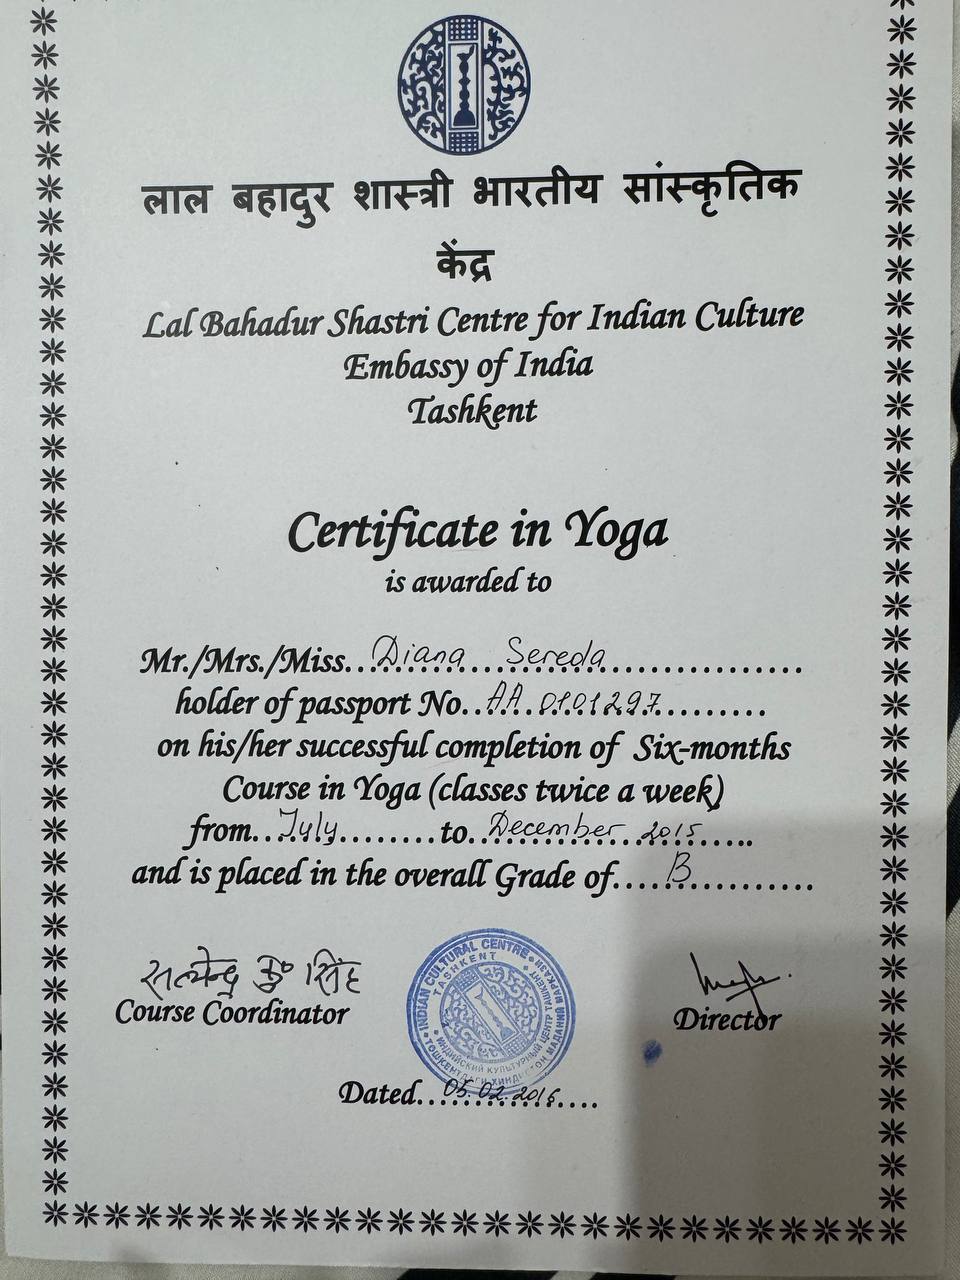 लाल बहादुर शास्त्री भारतीय सांस्कृतिक
केंद्र
Lal Bahadur Shastri Centre for Indian Culture
Embassy of India
Tashkent
Certificate in Yoga
is awarded to
Mr./Mrs./Miss...Diana...Sereda...................
holder of passport No..AA.0101297..........
on his/her successful completion of Six-months
Course in Yoga (classes twice a week)
from...July.........to..December 2015.....
and is placed in the overall Grade of.....B............
सत्येन्द्र कु० सिंह
Course Coordinator
Director
INDIAN CULTURAL CENTRE
TASHKENT
ИНДИЙСКИЙ КУЛЬТУРНЫЙ ЦЕНТР ТАШКЕНТ
ТОШКЕНТДАГИ ХИНДИСТОН МАДАНИЙ МАРКАЗИ
Dated...05.02.2016....